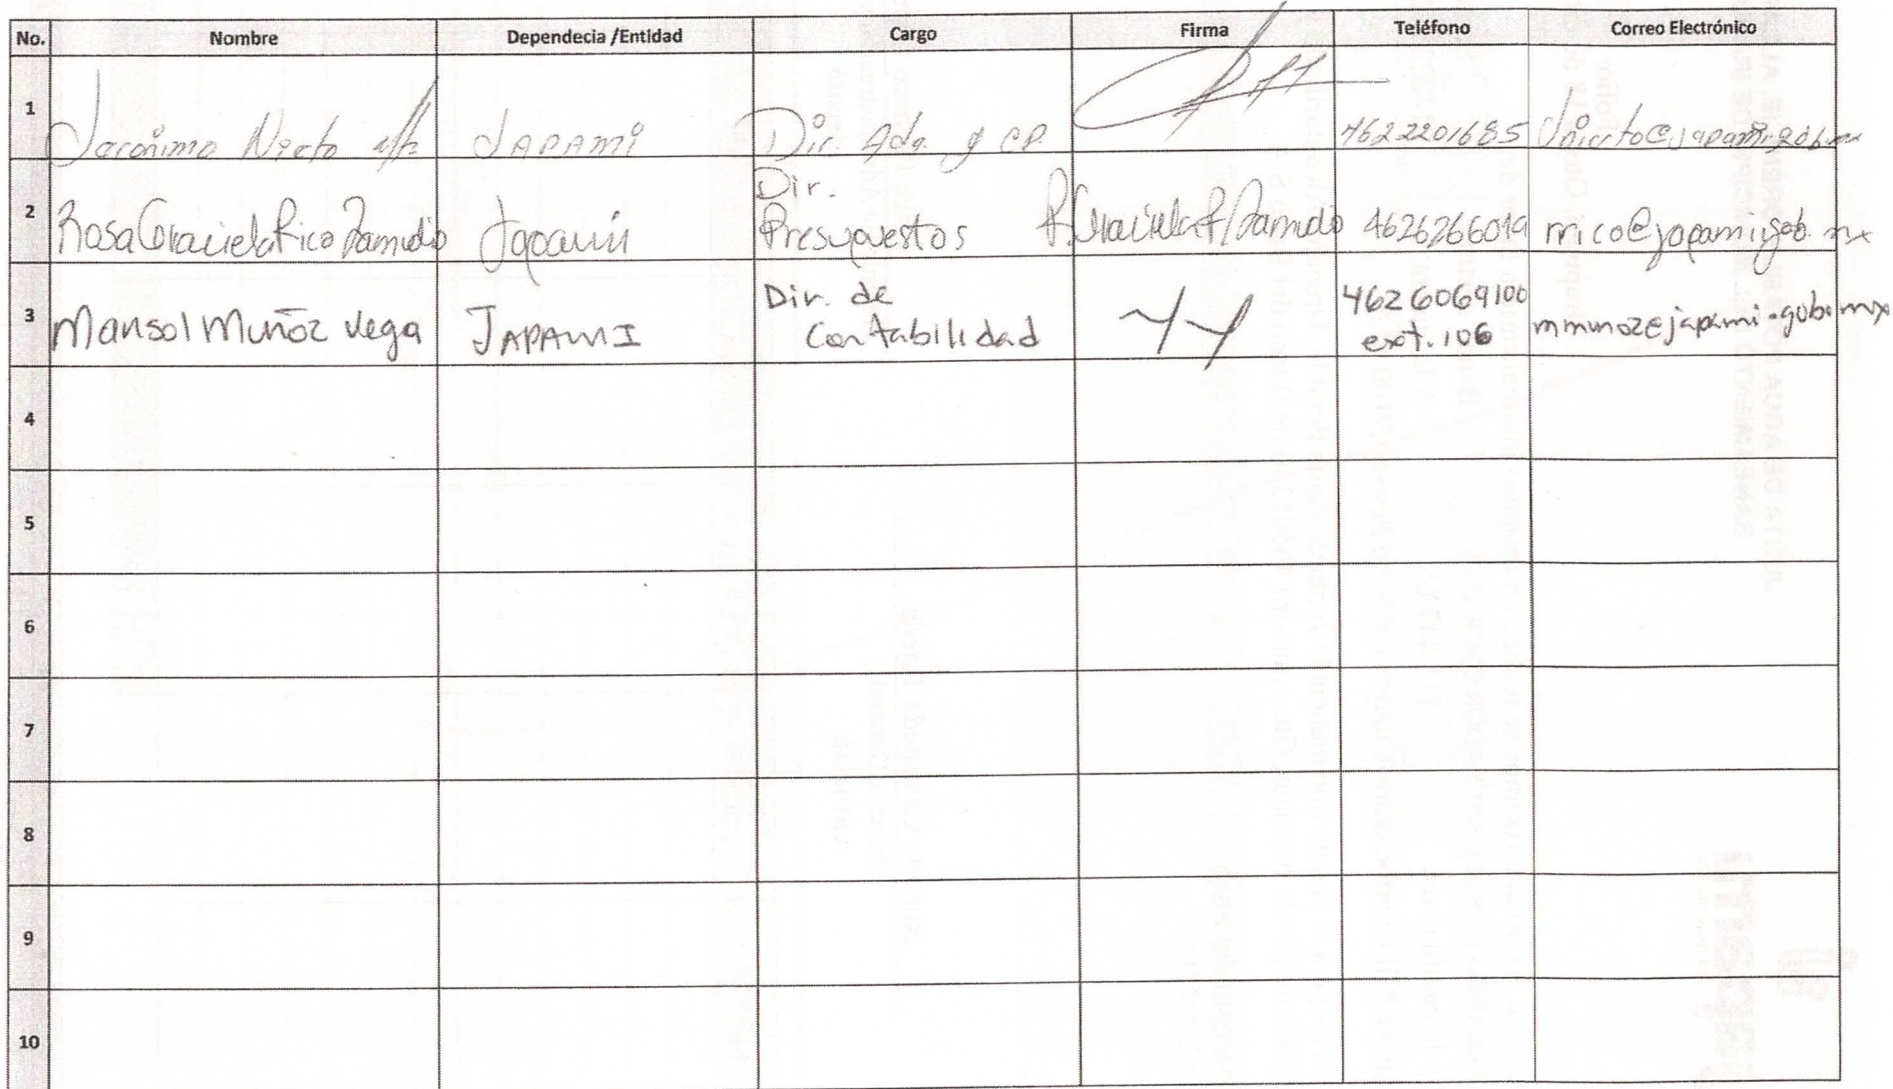 No. Nombre Dependecia /Entidad Cargo Firma Teléfono Correo Electrónico
1 Jerónimo Nieto JAPAMI Dir. Adq. y CP. 4622201685 Jnieto@japami.gob.mx
2 Rosa Graciela Rico Zamudio Japami Dir. Presupuestos R. Graciela R/Zamudio 4626266019 rrico@japami.gob.mx
3 Marisol Muñoz Vega JAPAMI Dir. de Contabilidad 4626069100 ext. 106 mmunoz@japami.gob.mx
4
5
6
7
8
9
10